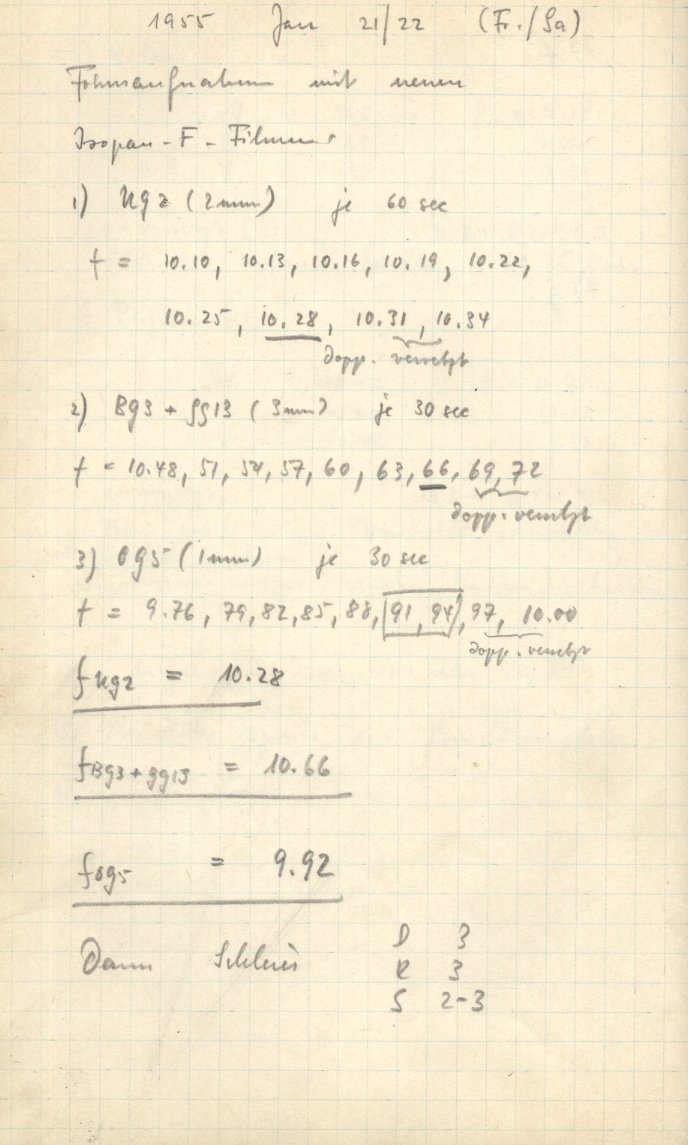 1955 Jan 21/22 (Fr./Sa)
Fokusaufnahmen mit neuen
Isopan-F-Filmen
1) Ug2 (2mm) je 60 sec
f = 10.10, 10.13, 10.16, 10.19, 10.22,
10.25, 10.28, 10.31, 10.34
dopp. versetzt
2) Bg3 + gg13 (3mm) je 30 sec
f = 10.48, 51, 54, 57, 60, 63, 66, 69, 72
dopp. versetzt
3) Og5 (1mm) je 30 sec
f = 9.76, 79, 82, 85, 88, 91, 94, 97, 10.00
dopp. versetzt
fUg2 = 10.28
fBg3+gg13 = 10.66
fOg5 = 9.92
Dann D 3
R 3
S 2-3